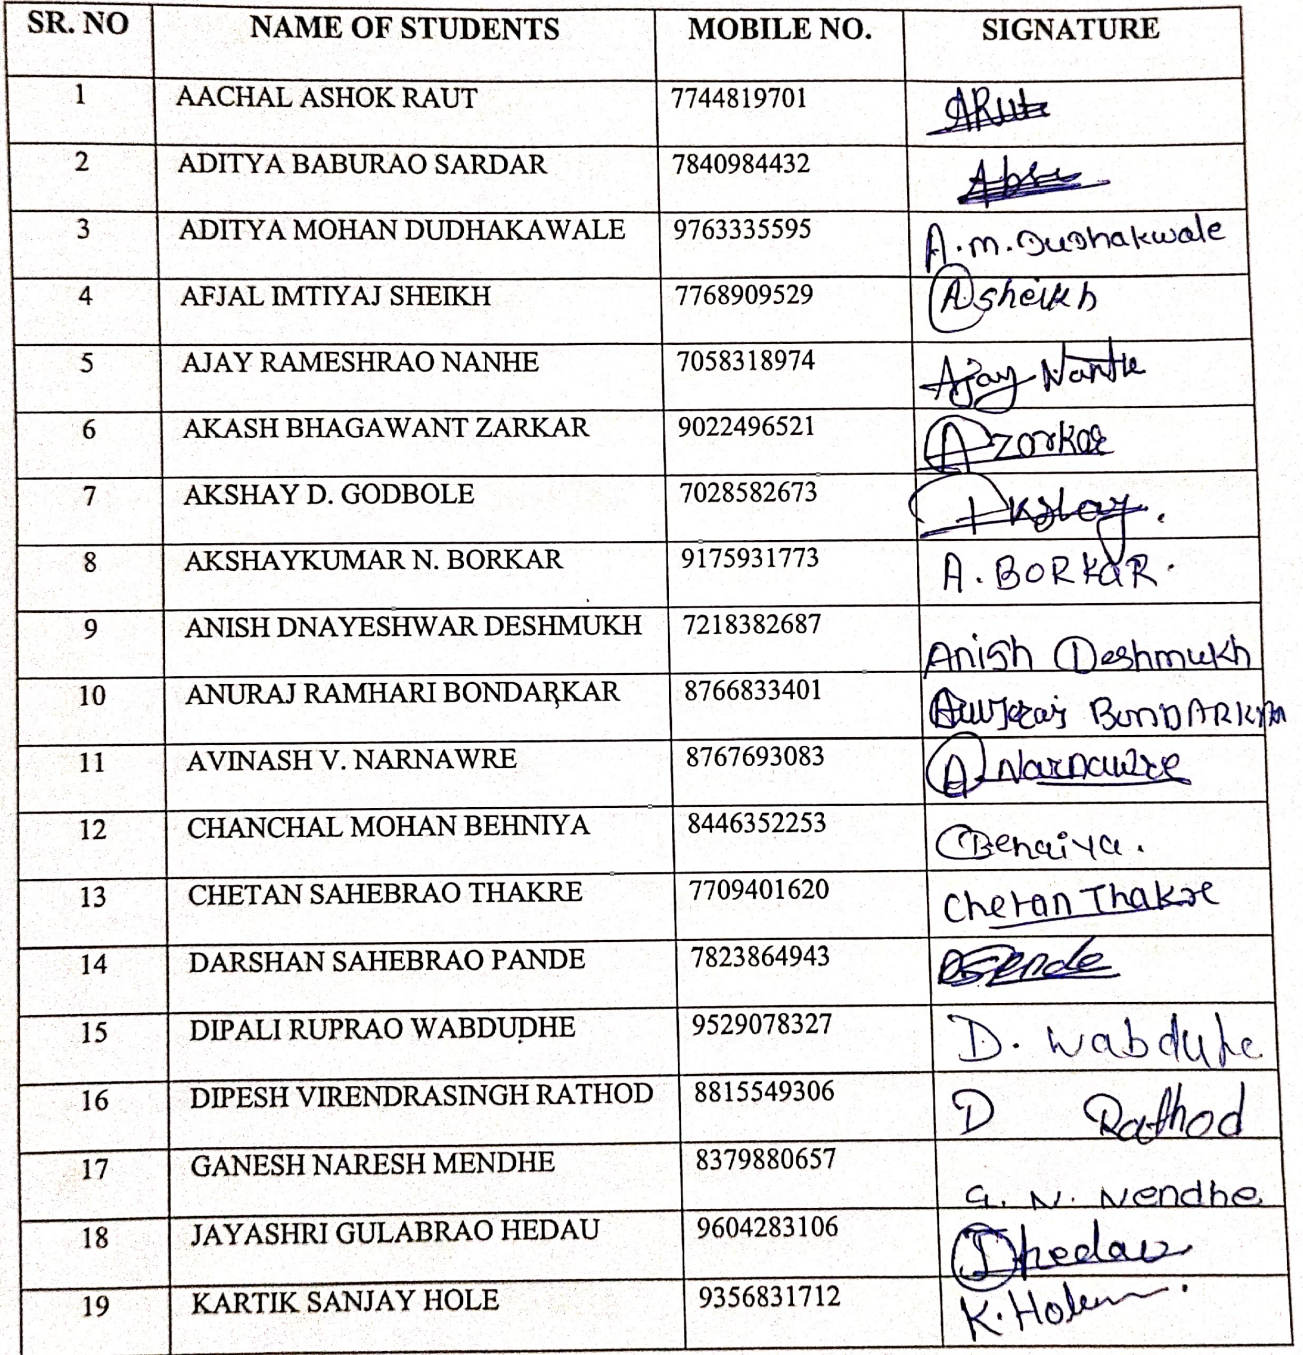 SR. NO NAME OF STUDENTS MOBILE NO. SIGNATURE
1 AACHAL ASHOK RAUT 7744819701
2 ADITYA BABURAO SARDAR 7840984432
3 ADITYA MOHAN DUDHAKAWALE 9763335595 A.M.Dudhakwale
4 AFJAL IMTIYAJ SHEIKH 7768909529 A sheikh
5 AJAY RAMESHRAO NANHE 7058318974 Ajay Nanhe
6 AKASH BHAGAWANT ZARKAR 9022496521 A zarkar
7 AKSHAY D. GODBOLE 7028582673
8 AKSHAYKUMAR N. BORKAR 9175931773 A. BORKAR.
9 ANISH DNAYESHWAR DESHMUKH 7218382687 Anish Deshmukh
10 ANURAJ RAMHARI BONDARKAR 8766833401 Anuraj BONDARKAR
11 AVINASH V. NARNAWRE 8767693083 A Narnawre
12 CHANCHAL MOHAN BEHNIYA 8446352253
13 CHETAN SAHEBRAO THAKRE 7709401620 Chetan Thakre
14 DARSHAN SAHEBRAO PANDE 7823864943
15 DIPALI RUPRAO WABDUDHE 9529078327 D.
16 DIPESH VIRENDRASINGH RATHOD 8815549306 D Rathod
17 GANESH NARESH MENDHE 8379880657 G. N. Mendhe
18 JAYASHRI GULABRAO HEDAU 9604283106 J hedau
19 KARTIK SANJAY HOLE 9356831712 K. Hole